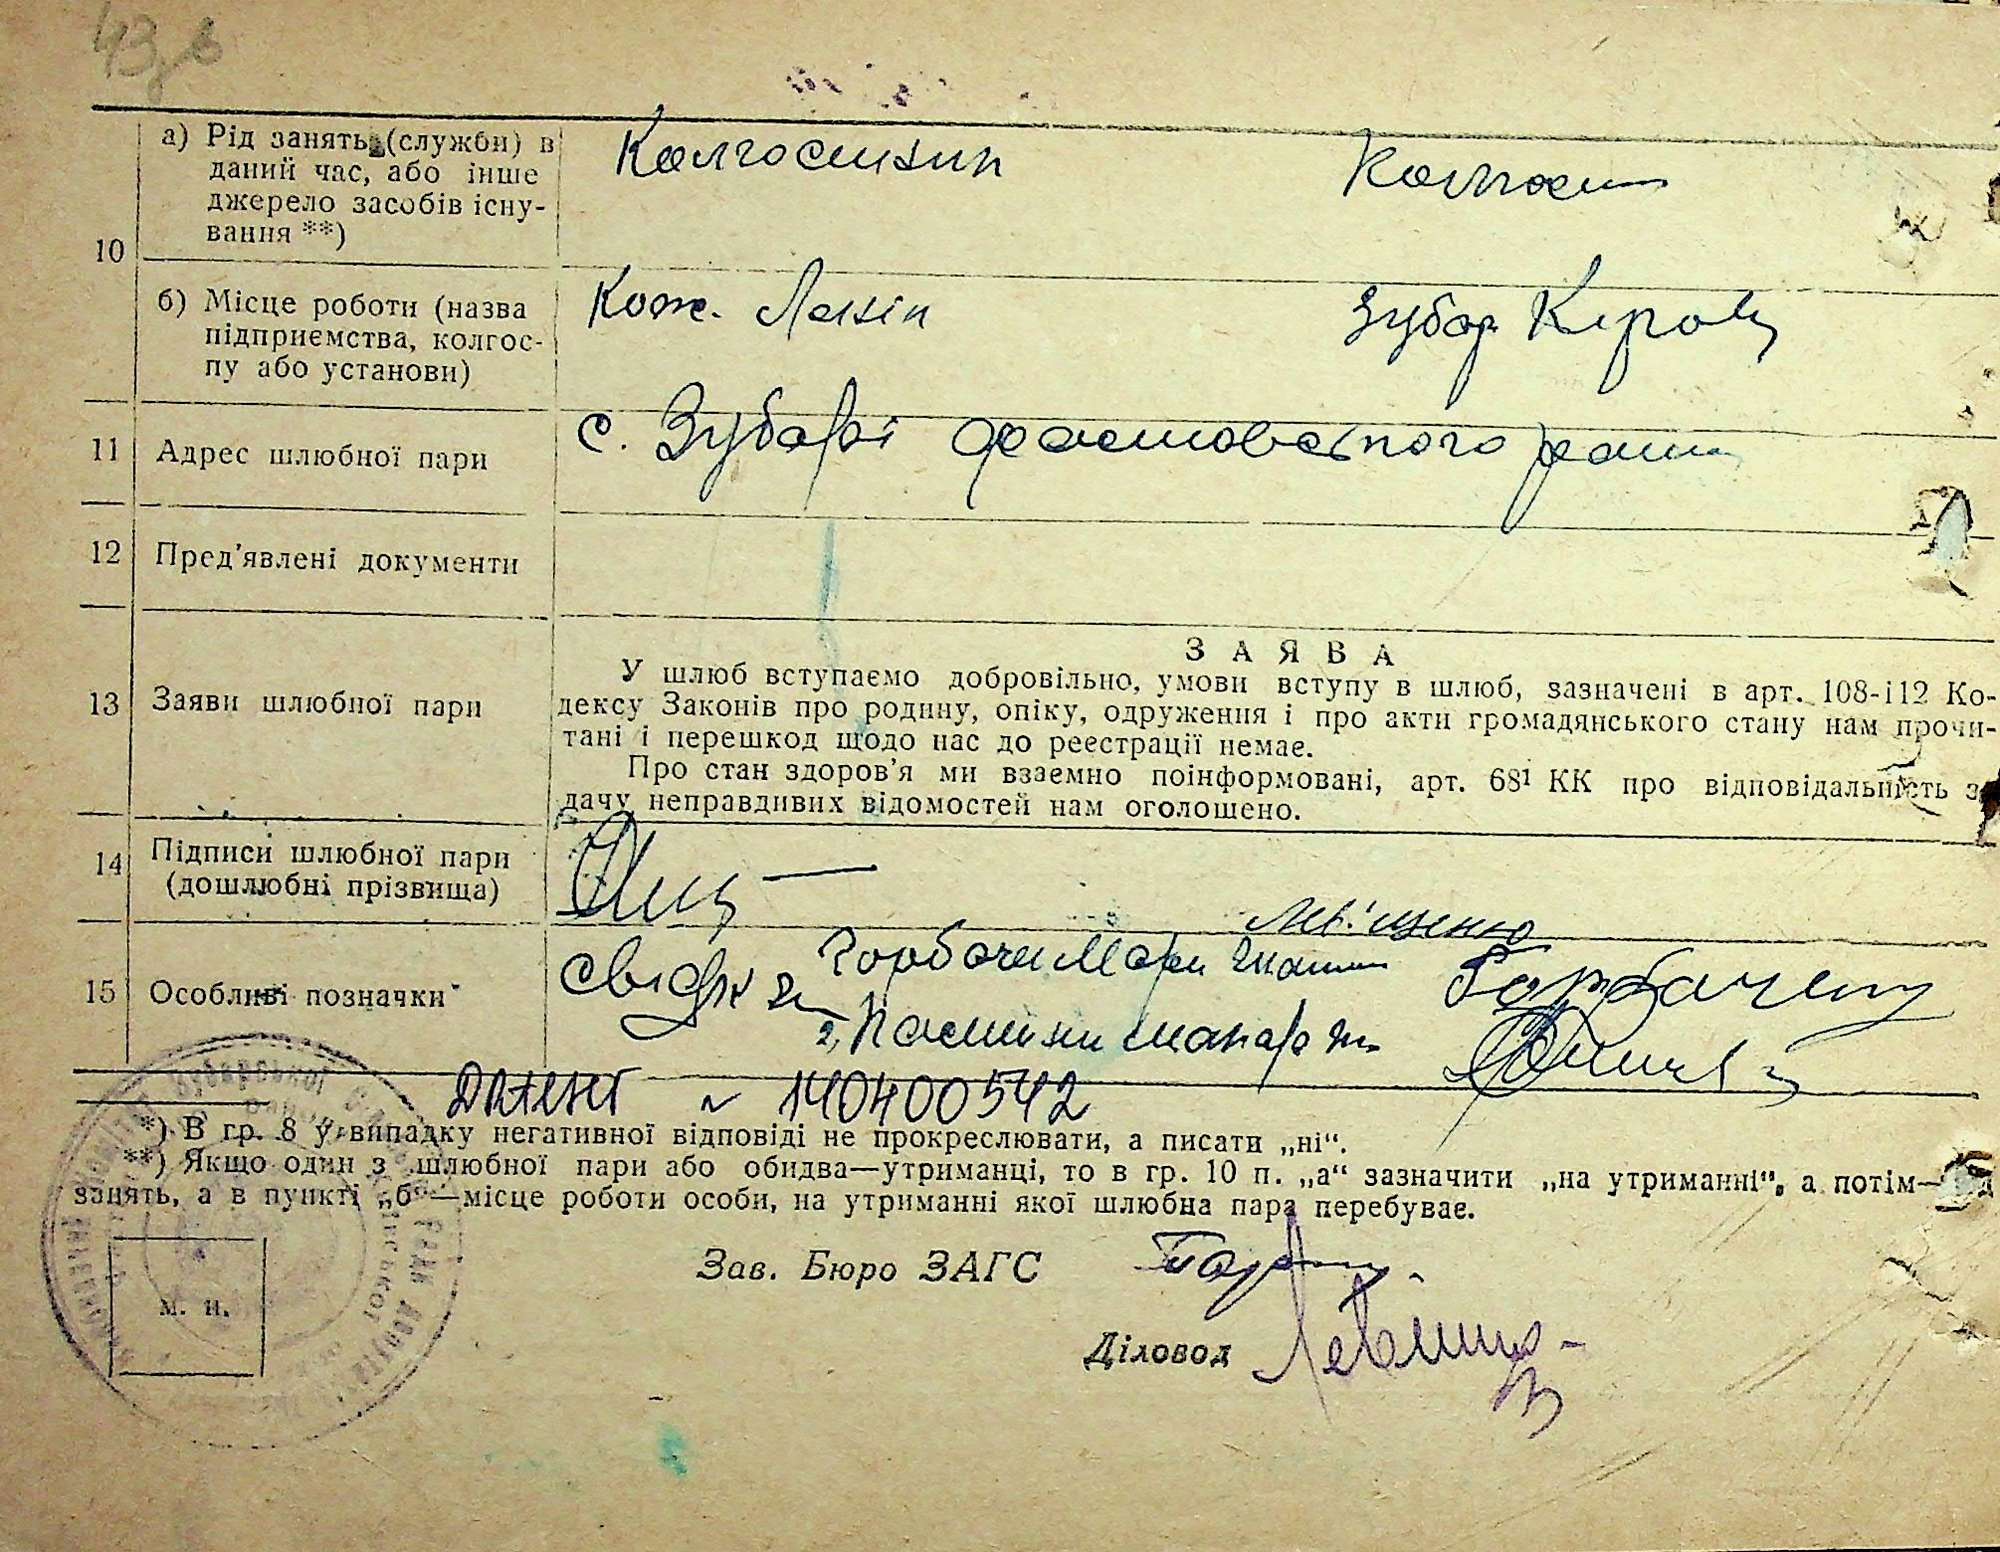 а) Рід занять (служби) в
даний час, або інше
джерело засобів існу-
вання **)
Колгоспник
10
б) Місце роботи (назва
підприємства, колгос-
пу або установи)
Ленін
Зубар Кірова
11 Адрес шлюбної пари
с. Зубарі Фастовського
12 Пред'явлені документи
13 Заяви шлюбної пари
ЗАЯВА
У шлюб вступаємо добровільно, умови вступу в шлюб, зазначені в арт. 108-112 Ко-
дексу Законів про родину, опіку, одруження і про акти громадянського стану нам прочи-
тані і перешкод щодо нас до реестрації немає.
Про стан здоров'я ми взаемно поінформовані, арт. 68¹ КК про відповідальність за
дачу неправдивих відомостей нам оголошено.
14 Підписи шлюбної пари
(дошлюбні прізвища)
15 Особливі позначки
1404400542
*) В гр. 8 у випадку негативної відповіді не прокреслювати, а писати „ні“.
**) Якщо один з шлюбної пари або обидва—утриманці, то в гр. 10 п. „а“ зазначити „на утриманні“, а потім—
занять, а в пункті „б“—місце роботи особи, на утриманні якої шлюбна пара перебуває.
Зав. Бюро ЗАГС
м. п.
Діловод